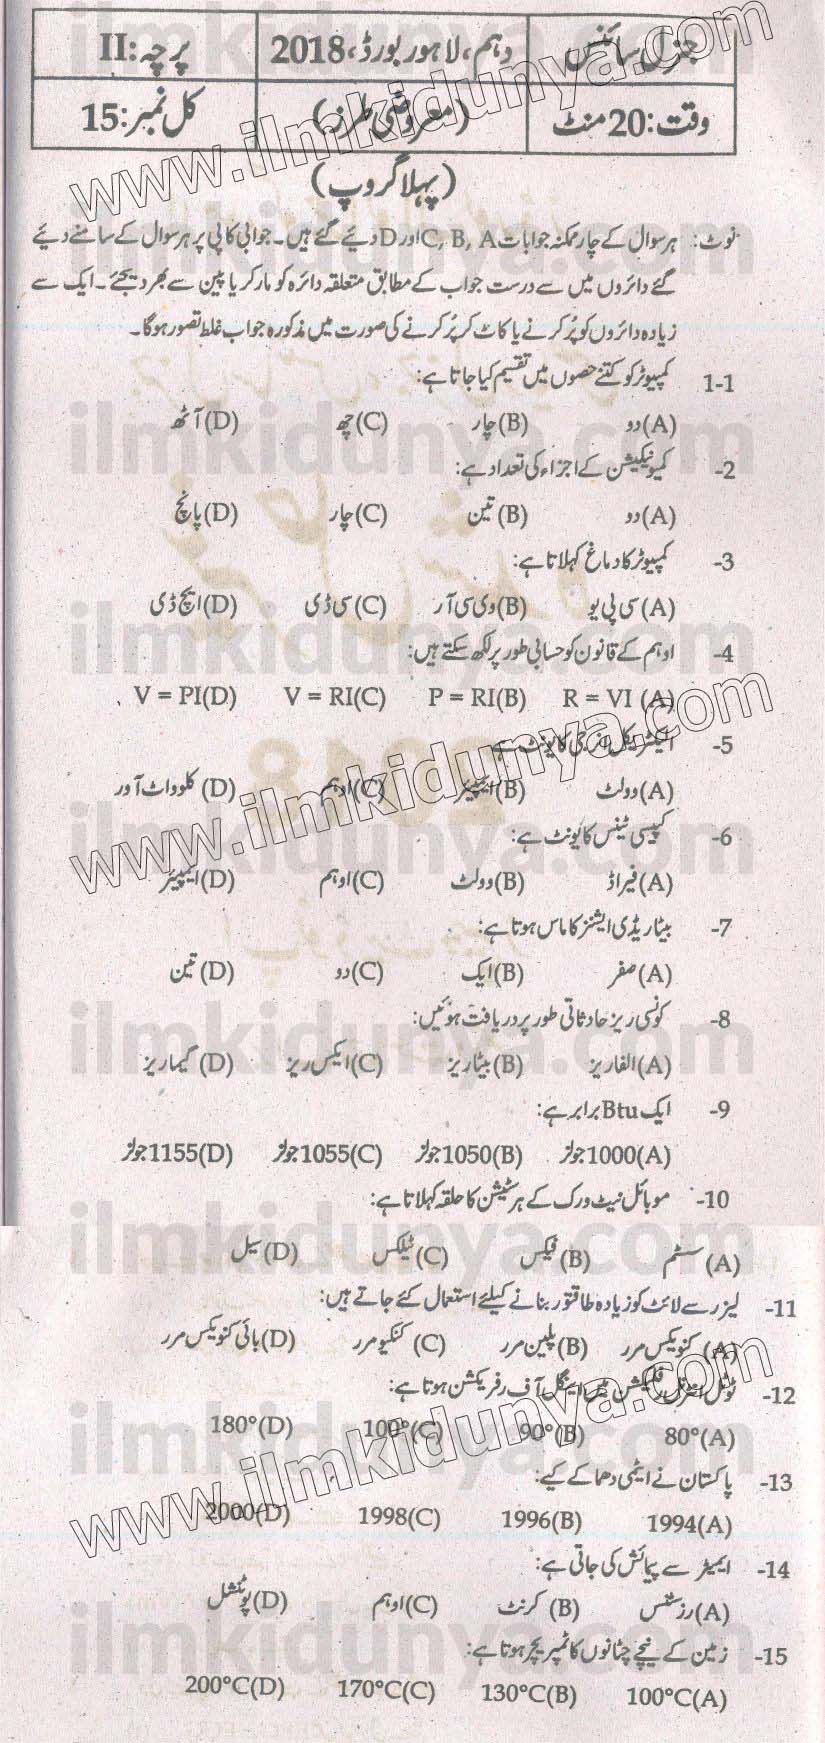 جنرل سائنس دہم، لاہور بورڈ، 2018 پرچہ: II
وقت: 20 منٹ (معروضی طرز) کل نمبر: 15
(پہلا گروپ)
نوٹ: ہر سوال کے چار ممکنہ جوابات C, B, A اور D دیئے گئے ہیں۔ جوابی کاپی پر ہر سوال کے سامنے دیئے
گئے دائروں میں سے درست جواب کے مطابق متعلقہ دائرہ کو مارکر یا پین سے بھر دیجئے۔ ایک سے
زیادہ دائروں کو پُر کرنے یا کاٹ کر پُر کرنے کی صورت میں مذکورہ جواب غلط تصور ہوگا۔
1-1 کمپیوٹر کو کتنے حصوں میں تقسیم کیا جاتا ہے:
(A) دو (B) چار (C) چھ (D) آٹھ
2- کمیونیکیشن کے اجزاء کی تعداد ہے:
(A) دو (B) تین (C) چار (D) پانچ
3- کمپیوٹر کا دماغ کہلاتا ہے:
(A) سی پی یو (B) وی سی آر (C) سی ڈی (D) ایچ ڈی
4- اوہم کے قانون کو حسابی طور پر لکھ سکتے ہیں:
(A) R = VI (B) P = RI (C) V = RI (D) V = PI
5- الیکٹریکل انرجی کا یونٹ ہے
(A) وولٹ (B) ایمپیئر (C) اوہم (D) کلوواٹ آور
6- کپیسی ٹینس کا یونٹ ہے:
(A) فیراڈ (B) وولٹ (C) اوہم (D) ایمپیئر
7- بیٹا ریڈی ایشنز کا ماس ہوتا ہے:
(A) صفر (B) ایک (C) دو (D) تین
8- کونسی ریز حادثاتی طور پر دریافت ہوئیں:
(A) الفا ریز (B) بیٹا ریز (C) ایکس ریز (D) گیما ریز
9- ایک Btu برابر ہے:
(A) 1000 جولز (B) 1050 جولز (C) 1055 جولز (D) 1155 جولز
10- موبائل نیٹ ورک کے ہر سٹیشن کا حلقہ کہلاتا ہے:
(A) سسٹم (B) فیکس (C) ٹیلکس (D) سیل
11- لیزر سے لائٹ کو زیادہ طاقتور بنانے کیلئے استعمال کئے جاتے ہیں:
(A) کنویکس مرر (B) پلین مرر (C) کنکیو مرر (D) بائی کنویکس مرر
12- ٹوٹل انٹرنل رفلیکشن میں اینگل آف رفریکشن ہوتا ہے:
(A) 80° (B) 90° (C) 100° (D) 180°
13- پاکستان نے ایٹمی دھماکے کیے:
(A) 1994 (B) 1996 (C) 1998 (D) 2000
14- ایمیٹر سے پیمائش کی جاتی ہے:
(A) رزسٹنس (B) کرنٹ (C) اوہم (D) پوٹنشل
15- زمین کے نیچے چٹانوں کا ٹمپریچر ہوتا ہے:
(A) 100°C (B) 130°C (C) 170°C (D) 200°C
www.ilmkidunya.com
www.ilmkidunya.com
www.ilmkidunya.com
ilmkidunya.com
ilmkidunya.com
ilmkidunya.com
ilmkidunya.com
ilmkidunya.com
ilmkidunya.com
ilmkidunya.com
ilmkidunya.com
ilmkidunya.com